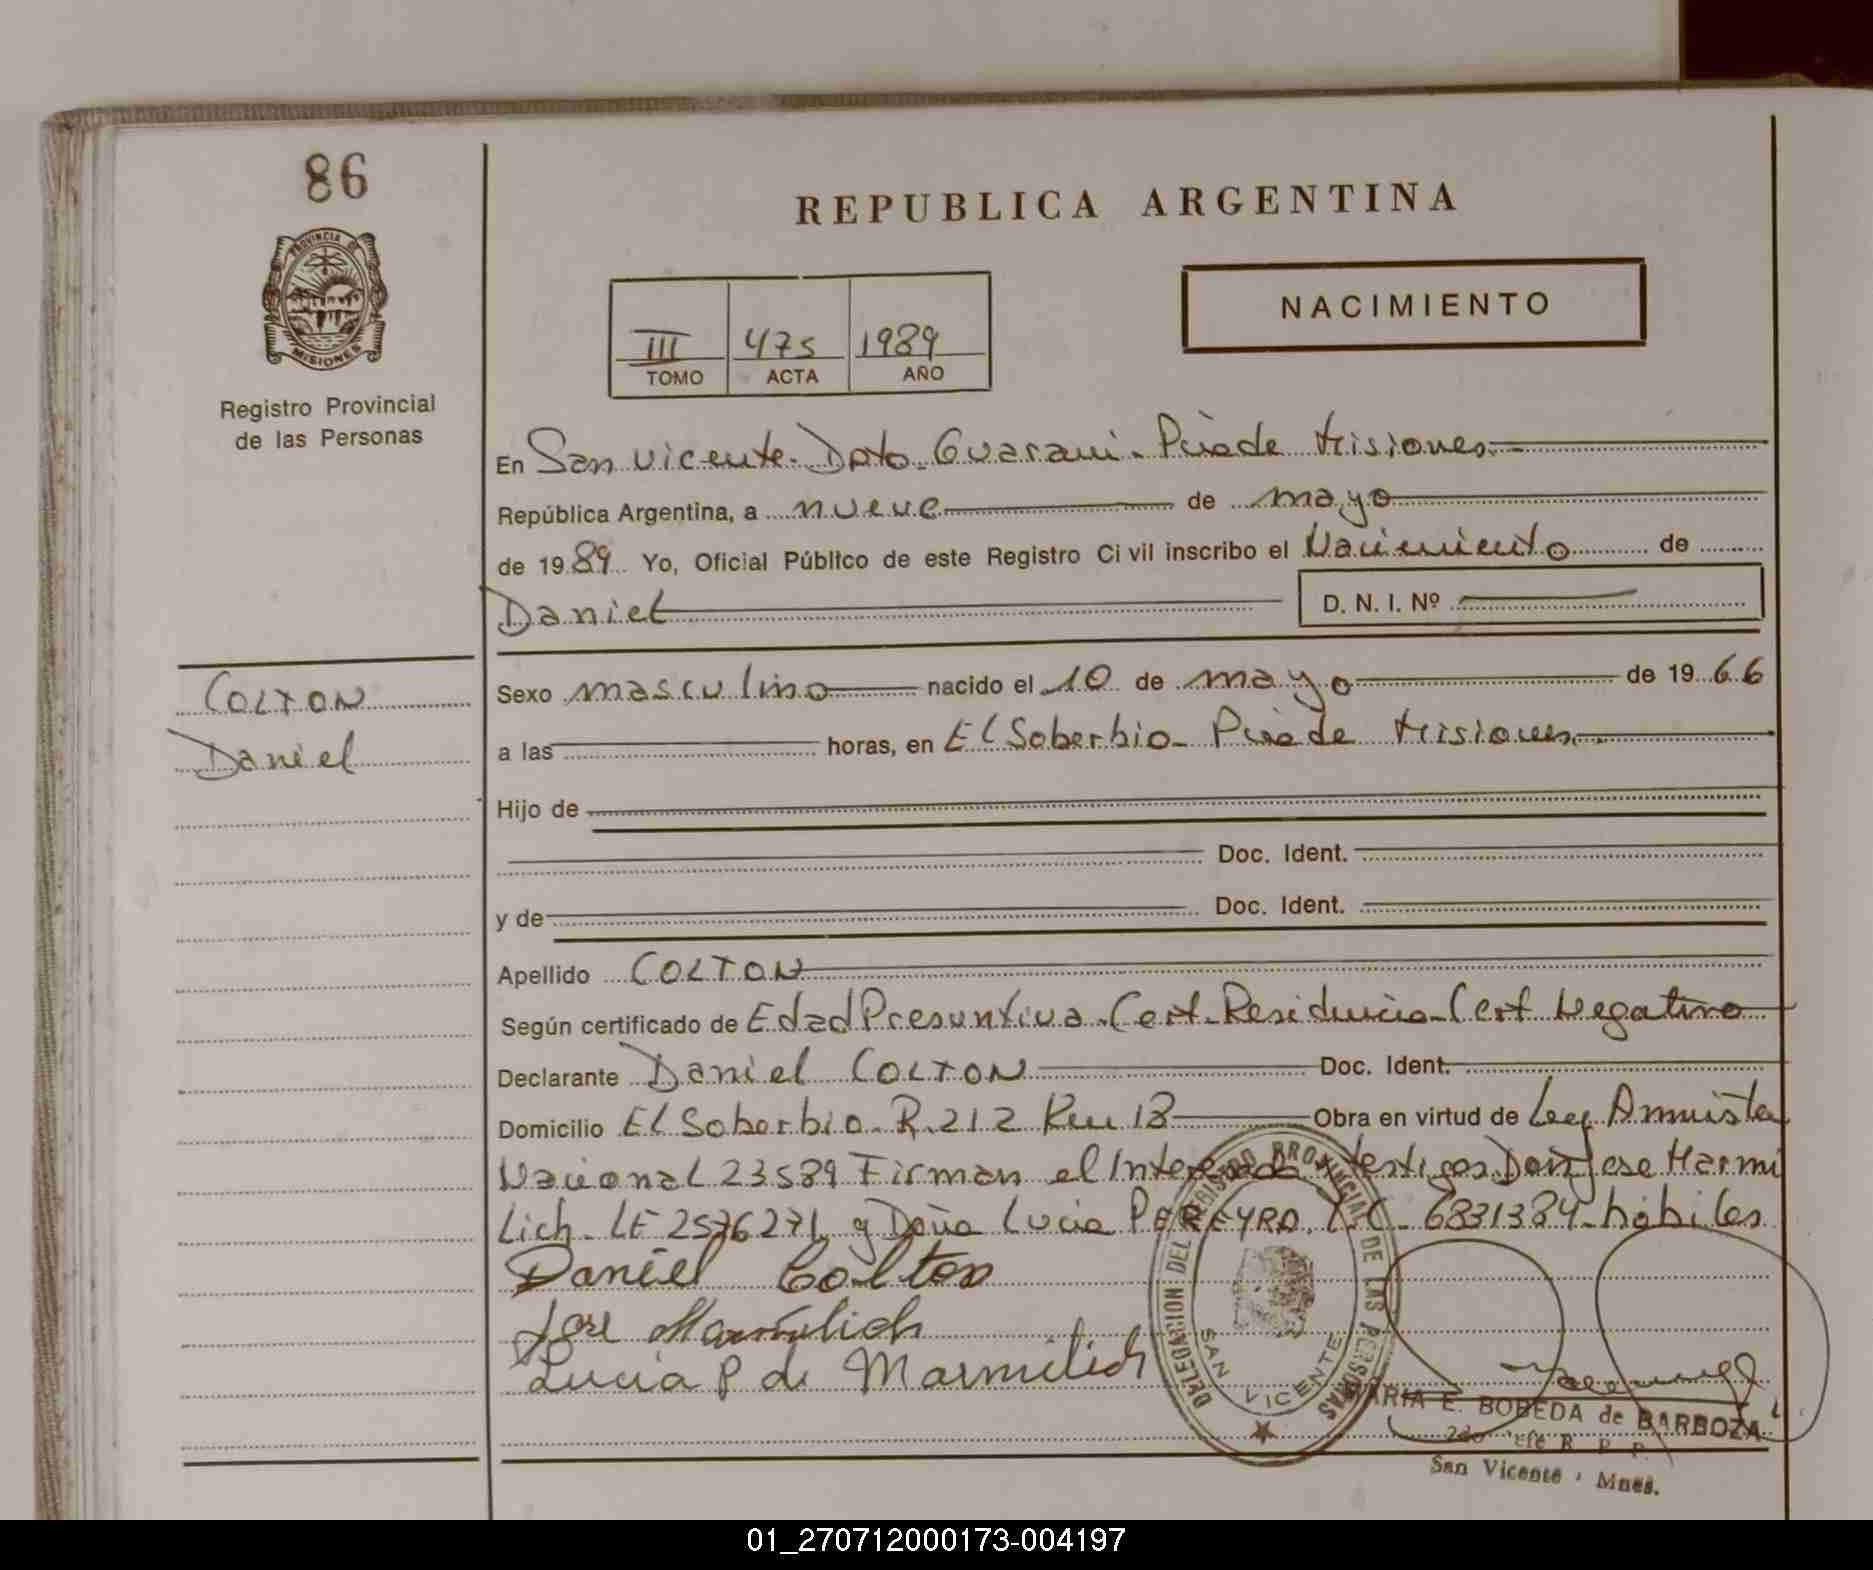 86
REPUBLICA ARGENTINA
PROVINCIA DE
MISIONES
NACIMIENTO
III 475 1989
TOMO ACTA AÑO
Registro Provincial
de las Personas
En San Vicente. Dpto. Guarani. Pcia de Misiones.
República Argentina, a nueve de mayo
de 1989 Yo, Oficial Público de este Registro Civil inscribo el Nacimiento de
Daniel D. N. I. Nº
COLTON
Daniel
Sexo masculino nacido el 10 de mayo de 1966
a las horas, en El Soberbio - Pcia de Misiones.
Hijo de
Doc. Ident.
y de Doc. Ident.
Apellido COLTON
Según certificado de Edad Presuntiva. Cert. Residencia - Cert Negativo
Declarante Daniel COLTON Doc. Ident.
Domicilio El Soberbio. R. 212 Km 18 Obra en virtud de Ley Amnistia
Nacional 23589 Firman el Interesado y testigos Don Jose Marmi
lich. LE 2576271 y Doña Lucia PEREYRA. L.C. 6831384 - hábiles
Daniel Colton
Jose Marmilich
Lucia P de Marmilich
DELEGACION DEL REGISTRO PROVINCIAL DE LAS PERSONAS
SAN VICENTE
MARIA E. BOBEDA de BARBOZA
2do Jefe R. P. P.
San Vicente - Mnes.
01_270712000173-004197